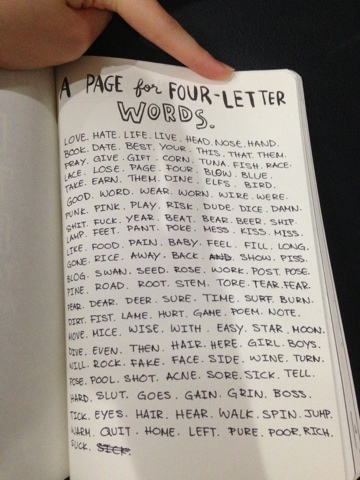 A PAGE for FOUR-LETTER
WORDS.
LOVE. HATE. LIFE. LIVE. HEAD. NOSE. HAND.
BOOK. DATE. BEST. YOUR. THIS. THAT. THEM.
PRAY. GIVE. GIFT. CORN. TUNA. FISH. RACE.
LACE. LOSE. PAGE. FOUR. BLOW. BLUE.
TAKE. EARN. THEM. DINE. ELFS. BIRD.
GOOD. WORD. WEAR. WORN. WIRE. WERE.
PUNK. PINK. PLAY. RISK. DUDE. DICE. DAMN.
SHIT. FUCK. YEAR. BEAT. BEAR. BEER. SHIP.
LAMP. FEET. PANT. POKE. MESS. KISS. MISS.
LIKE. FOOD. PAIN. BABY. FEEL. FILL. LONG.
GONE. RICE. AWAY. BACK. AND. SHOW. PISS.
BLOG. SWAN. SEED. ROSE. WORK. POST. POSE.
PINE. ROAD. ROOT. STEM. TORE. TEAR. FEAR.
DEAR. DEER. SURE. TIME. SURF. BURN.
DIRT. FIST. LAME. HURT. GAME. POEM. NOTE.
MOVE. MICE. WISE. WITH. EASY. STAR. MOON.
DIVE. EVEN. THEN. HAIR. HERE. GIRL. BOYS.
WILL. ROCK. FAKE. FACE. SIDE. WINE. TURN.
POSE. POOL. SHOT. ACNE. SORE. SICK. TELL.
HARD. SLUT. GOES. GAIN. GRIN. BOSS.
TICK. EYES. HAIR. HEAR. WALK. SPIN. JUMP.
WARM. QUIT. HOME. LEFT. PURE. POOR. RICH.
SICK.